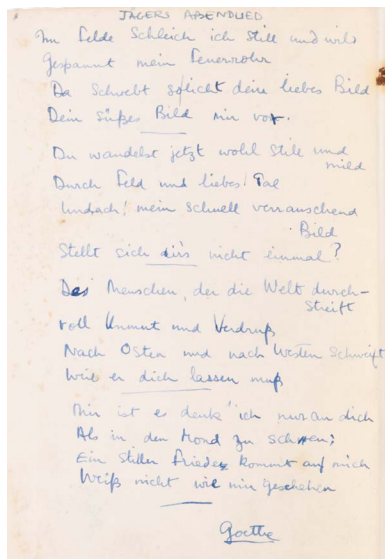 JÄGERS ABENDLIED
Im Felde Schleich ich still und wild
Gespannt mein Feuerrohr
Da Schwebt so licht dein liebes Bild
Dein süßes Bild mir vor.
Du wandelst jetzt wohl still und
mild
Durch Feld und liebes Tal
Und ach! mein schnell verrauschend
Bild
Stellt sich dir's nicht einmal?
Des Menschen, der die Welt durch-
streift
voll Unmut und Verdruß
Nach Osten und nach Westen Schweift
Weil er dich lassen muß
Mir ist es denk' ich nur an dich
Als in den Mond zu sehen;
Ein stiller Friede kommt auf mich
Weiß nicht wie mir geschehen
Goethe